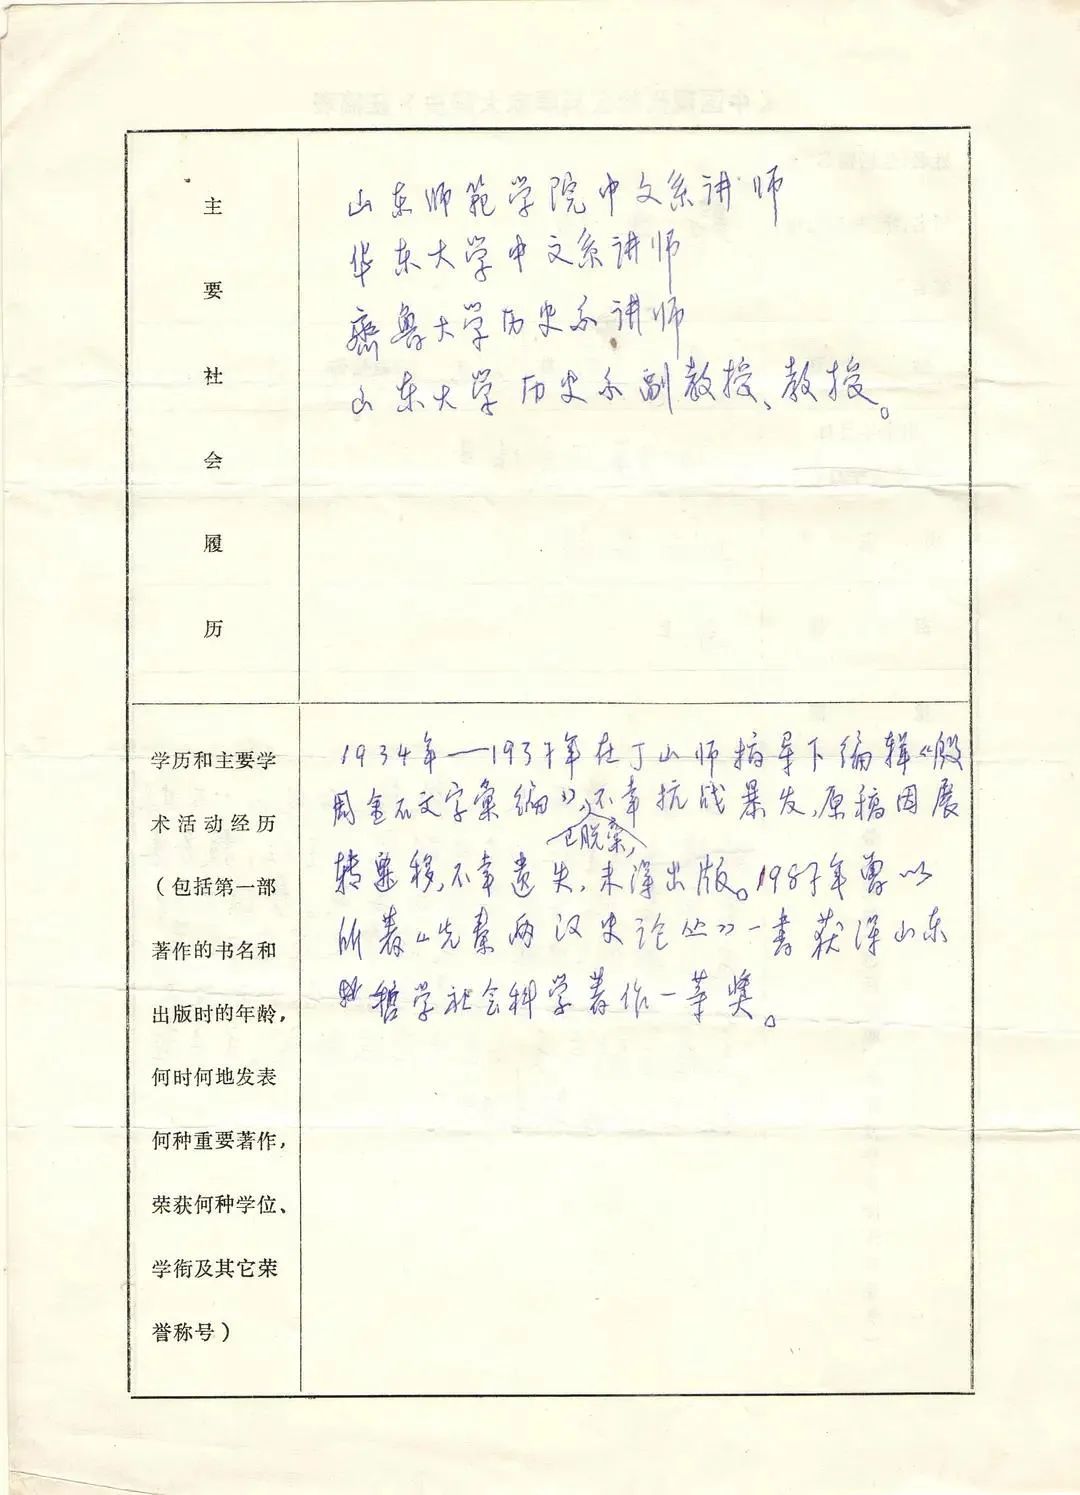 主要社会履历
山东师范学院中文系讲师
华东大学中文系讲师
齐鲁大学历史系讲师
山东大学历史系副教授、教授。
学历和主要学
术活动经历
(包括第一部
著作的书名和
出版时的年龄,
何时何地发表
何种重要著作,
荣获何种学位、
学衔及其它荣
誉称号)
1934年——1937年在丁山师指导下编辑《殷
周金石文字彙编》,不幸抗战暴发,原稿因展
已脱稾,
转迁移,不幸遗失,未得出版。1987年曾以
所著《先秦两汉史论丛》一书获得山东
哲学社会科学著作一等奖。